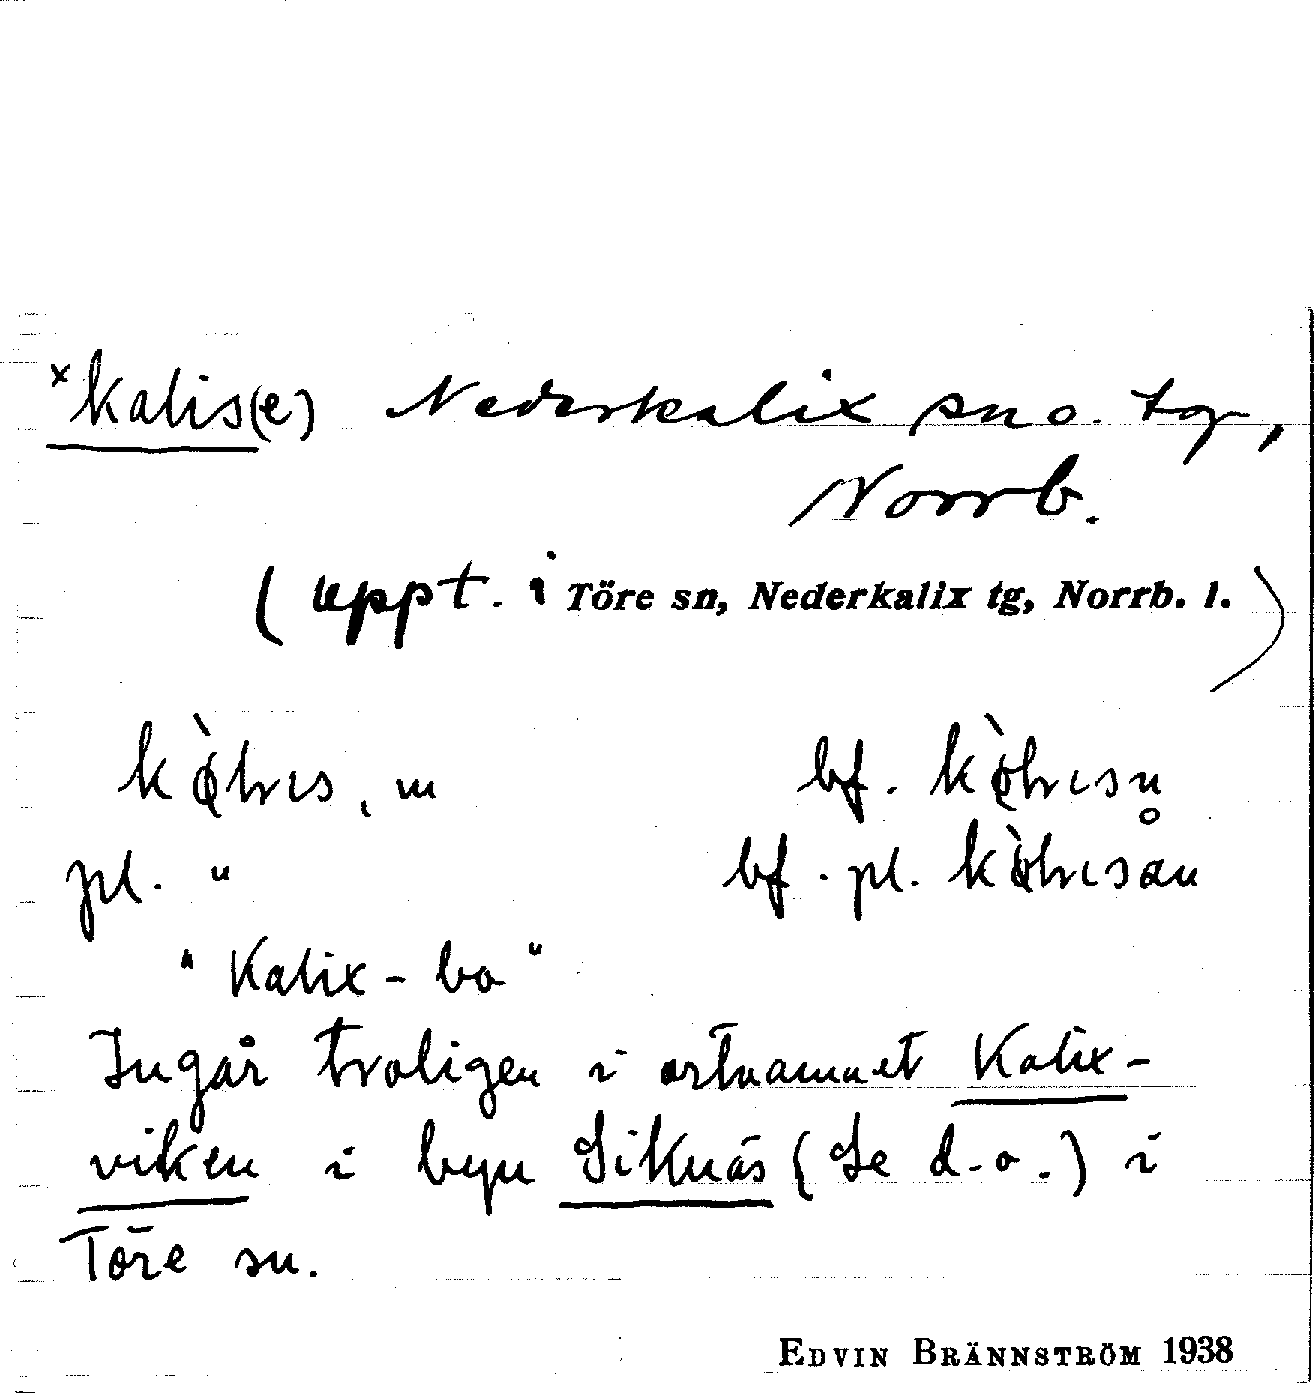 x kalis(e) Nederkalix sn o. tg,
Norrb.
(uppt. i Töre sn, Nederkalix tg, Norrb. l.)
m bf.
pl. " bf. pl.
"Kalix-bo"
Ingår troligen i ortnamnet Kalix-
viken i byn Siknäs (Se d.o.) i
Töre sn.
EDVIN BRÄNNSTRÖM 1938